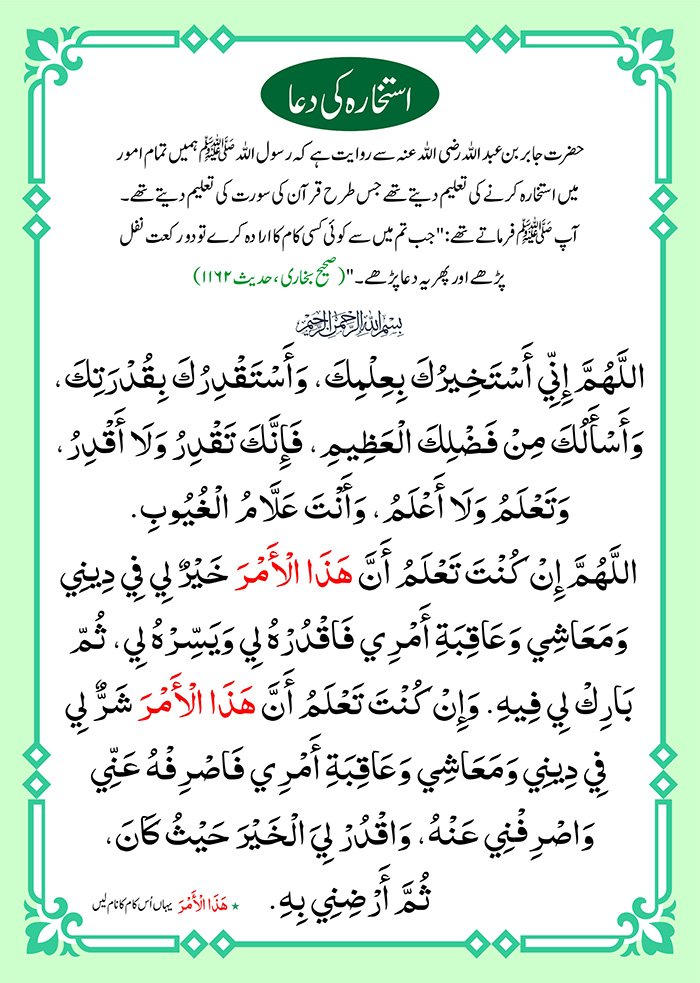 استخارہ کی دعا
حضرت جابر بن عبد اللہ رضی اللہ عنہ سے روایت ہے کہ رسول اللہ ﷺ ہمیں تمام امور
میں استخارہ کرنے کی تعلیم دیتے تھے جس طرح قرآن کی سورت کی تعلیم دیتے تھے۔
آپ ﷺ فرماتے تھے: "جب تم میں سے کوئی کسی کام کا ارادہ کرے تو دو رکعت نفل
پڑھے اور پھر یہ دعا پڑھے۔" (صحیح بخاری، حدیث ۱۱۶۲)
بِسْمِ اللهِ الرَّحْمٰنِ الرَّحِيْمِ
اللَّهُمَّ إِنِّي أَسْتَخِيرُكَ بِعِلْمِكَ، وَأَسْتَقْدِرُكَ بِقُدْرَتِكَ،
وَأَسْأَلُكَ مِنْ فَضْلِكَ الْعَظِيمِ، فَإِنَّكَ تَقْدِرُ وَلَا أَقْدِرُ،
وَتَعْلَمُ وَلَا أَعْلَمُ، وَأَنْتَ عَلَّامُ الْغُيُوبِ.
اللَّهُمَّ إِنْ كُنْتَ تَعْلَمُ أَنَّ هَذَا الْأَمْرَ خَيْرٌ لِي فِي دِينِي
وَمَعَاشِي وَعَاقِبَةِ أَمْرِي فَاقْدُرْهُ لِي وَيَسِّرْهُ لِي، ثُمَّ
بَارِكْ لِي فِيهِ. وَإِنْ كُنْتَ تَعْلَمُ أَنَّ هَذَا الْأَمْرَ شَرٌّ لِي
فِي دِينِي وَمَعَاشِي وَعَاقِبَةِ أَمْرِي فَاصْرِفْهُ عَنِّي
وَاصْرِفْنِي عَنْهُ، وَاقْدُرْ لِيَ الْخَيْرَ حَيْثُ كَانَ،
ثُمَّ أَرْضِنِي بِهِ.
٭ هَذَا الْأَمْرَ یہاں اُس کام کا نام لیں